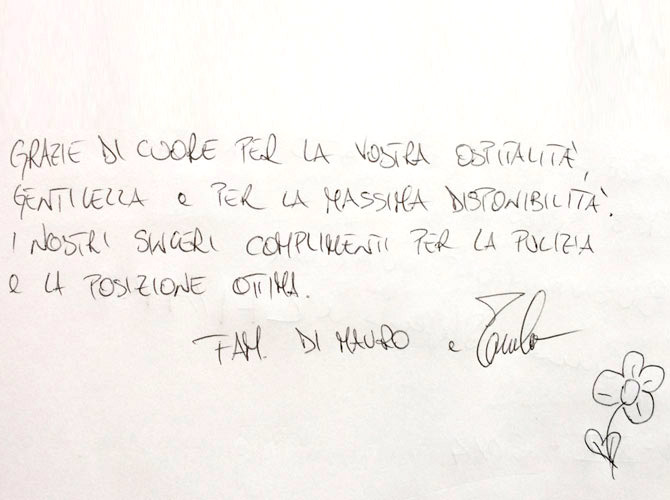 GRAZIE DI CUORE PER LA VOSTRA OSPITALITÀ,
GENTILEZZA e PER LA MASSIMA DISPONIBILITÀ.
I NOSTRI SINCERI COMPLIMENTI PER LA PULIZIA
e LA POSIZIONE OTTIMA.
FAM. DI MAURO e